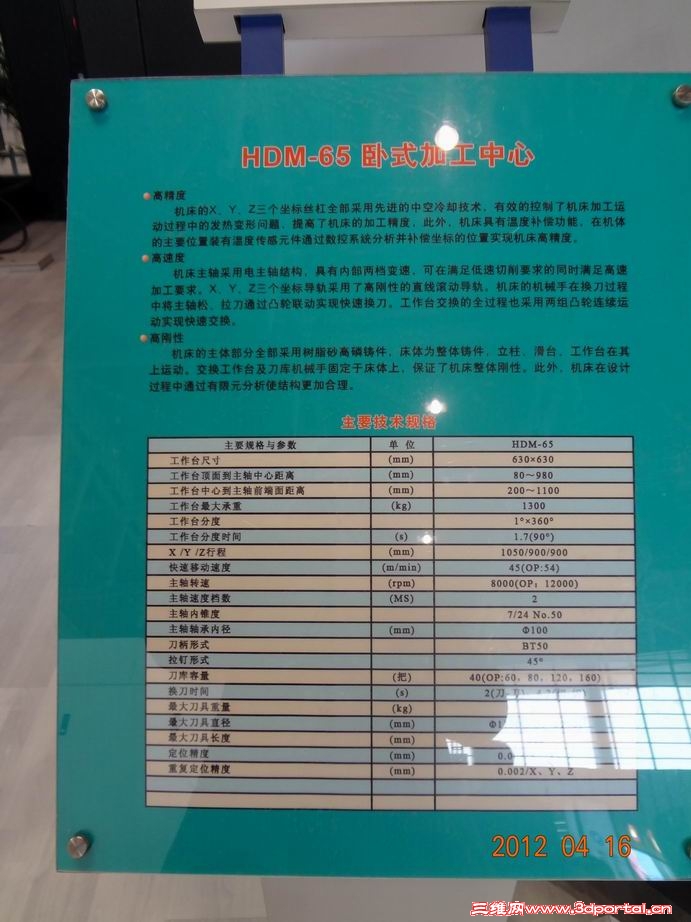 HDM-65 卧式加工中心
高精度
机床的X、Y、Z三个坐标丝杠全部采用先进的中空冷却技术，有效的控制了机床加工运
动过程中的发热变形问题，提高了机床的加工精度，此外，机床具有温度补偿功能，在机体
的主要位置装有温度传感元件通过数控系统分析并补偿坐标的位置实现机床高精度。
高速度
机床主轴采用电主轴结构，具有内部两档变速，可在满足低速切削要求的同时满足高速
加工要求。X、Y、Z三个坐标导轨采用了高刚性的直线滚动导轨。机床的机械手在换刀过程
中将主轴松、拉刀通过凸轮联动实现快速换刀。工作台交换的全过程也采用两组凸轮连续运
动实现快速交换。
高刚性
机床的主体部分全部采用树脂砂高磷铸件，床体为整体铸件，立柱、滑台、工作台在其
上运动。交换工作台及刀库机械手固定于床体上，保证了机床整体刚性。此外，机床在设计
过程中通过有限元分析使结构更加合理。
主要技术规格
主要规格与参数 单 位 HDM-65
工作台尺寸 (mm) 630×630
工作台顶面到主轴中心距离 (mm) 80～980
工作台中心到主轴前端面距离 (mm) 200～1100
工作台最大承重 (kg) 1300
工作台分度 1°×360°
工作台分度时间 (s) 1.7(90°)
X /Y /Z行程 (mm) 1050/900/900
快速移动速度 (m/min) 45(OP:54)
主轴转速 (rpm) 8000(OP: 12000)
主轴速度档数 (MS) 2
主轴内锥度 7/24 No.50
主轴轴承内径 (mm) Φ100
刀柄形式 BT50
拉钉形式 45°
刀库容量 (把) 40(OP:60, 80, 120, 160)
换刀时间 (s)
最大刀具重量 (kg)
最大刀具直径 (mm)
最大刀具长度 (mm)
定位精度 (mm)
重复定位精度 (mm) 0.002/X、Y、Z
2012 04 16
三维网www.3dportal.cn